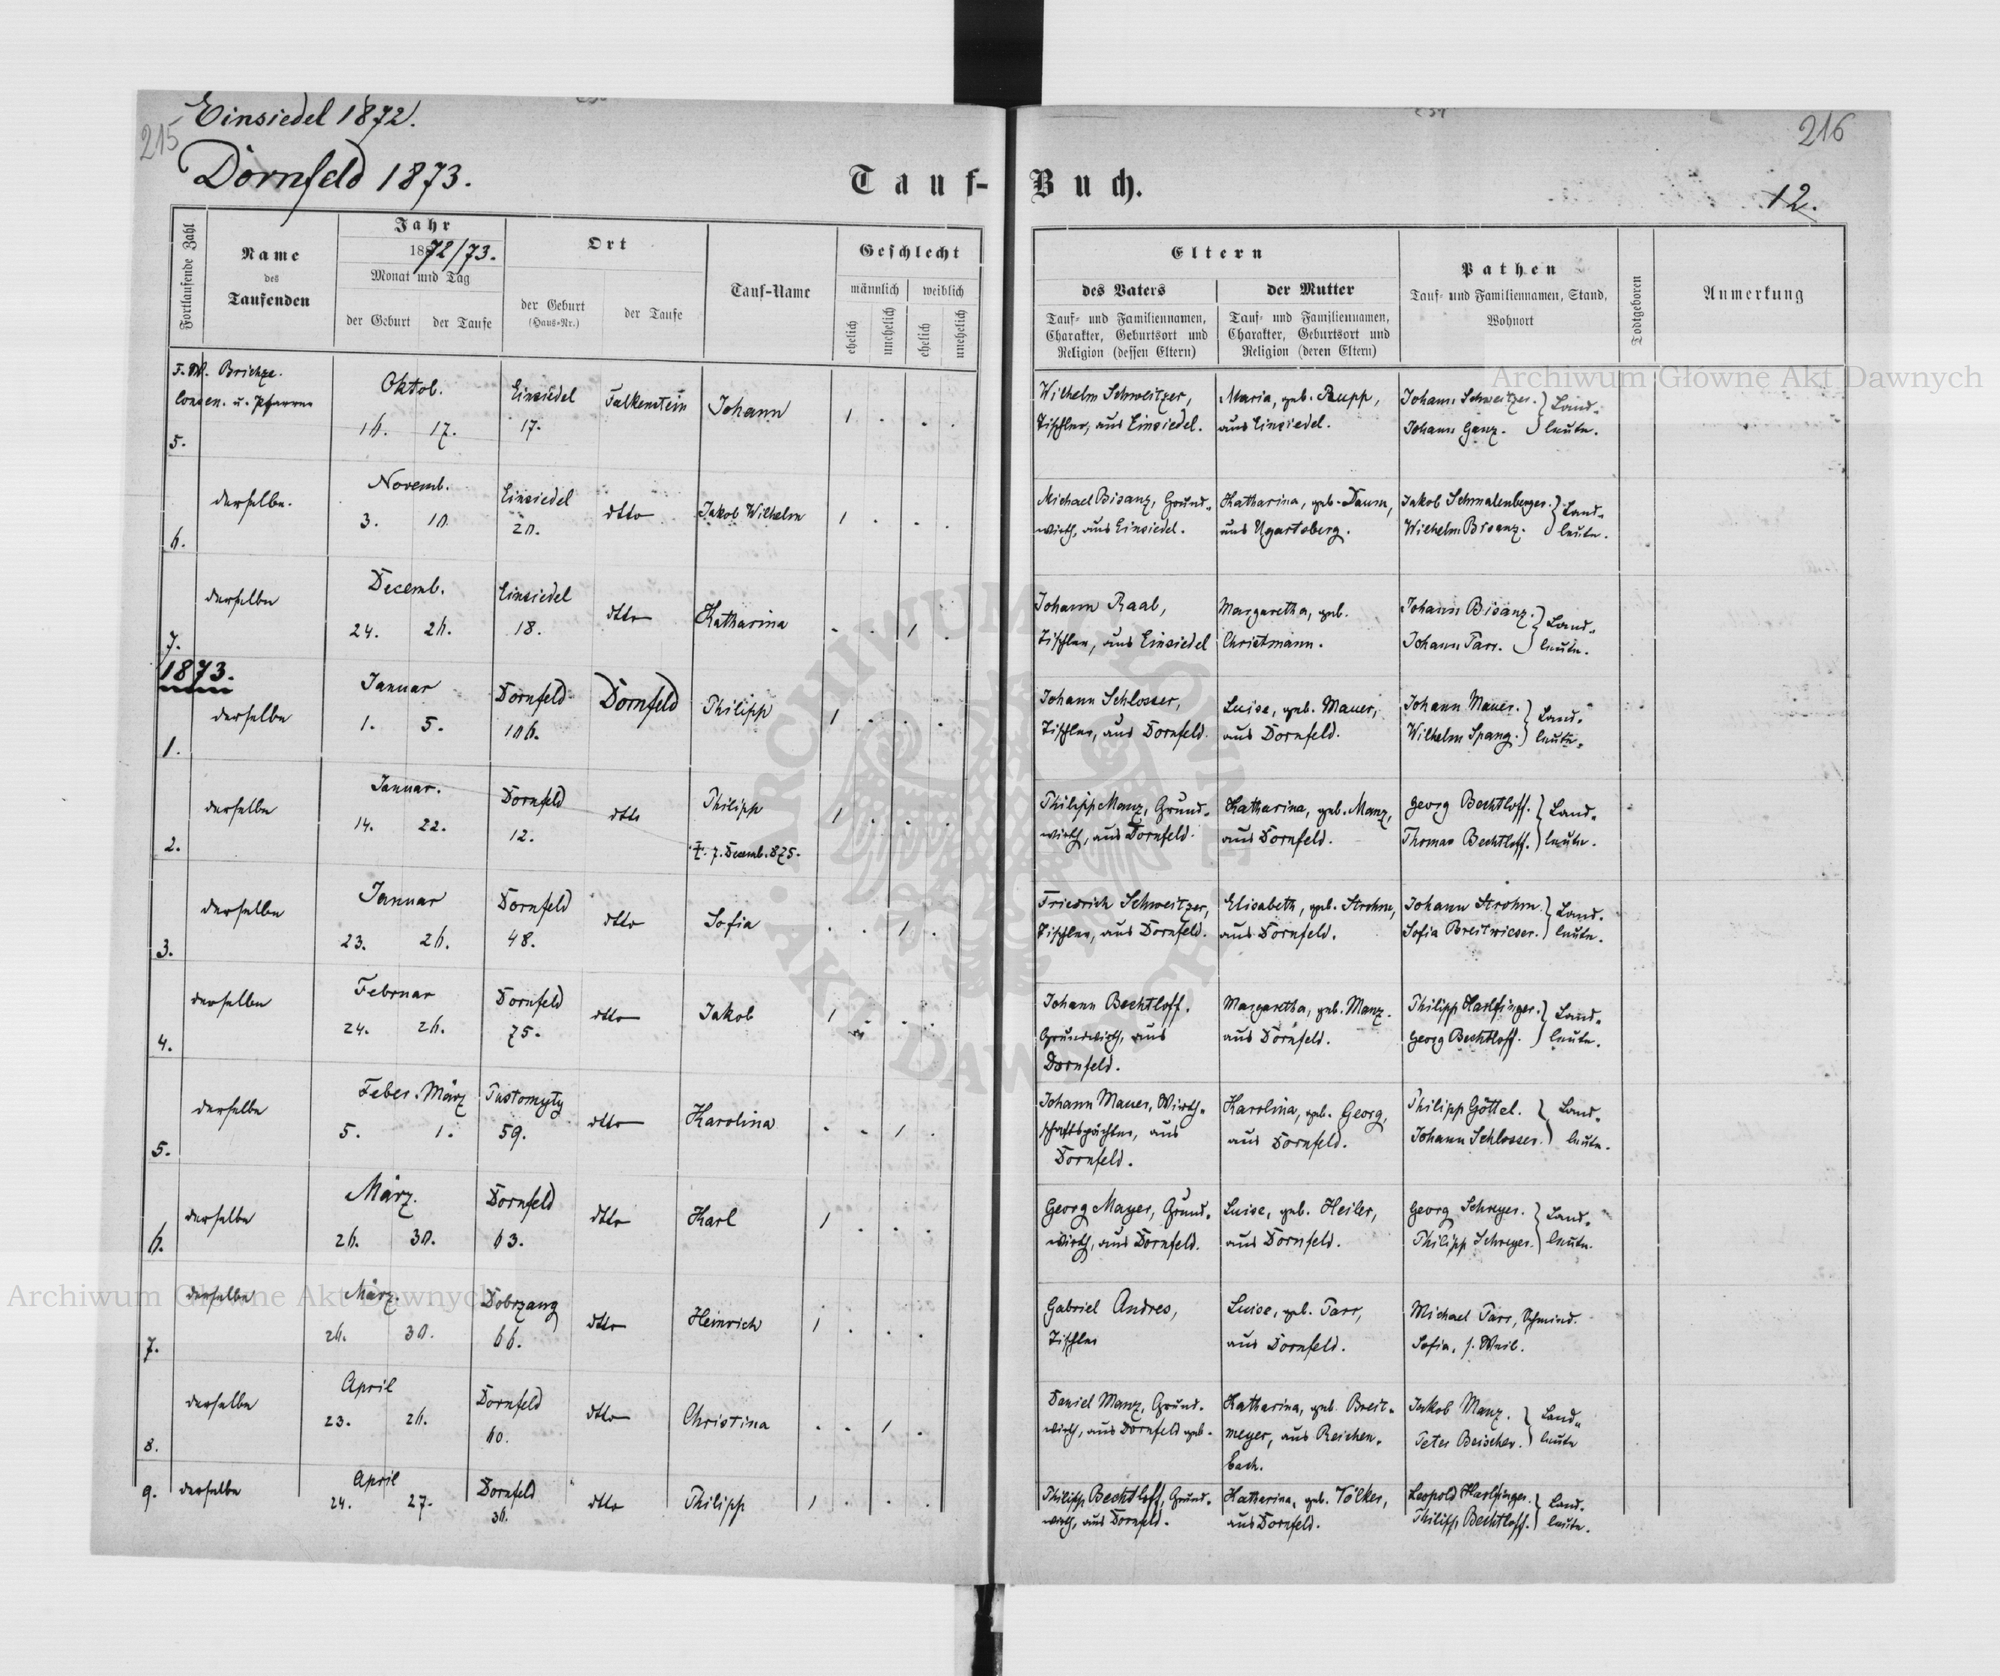 Einsiedel 1872.
215
Dornfeld 1873.
Tauf-
Buch.
216
12.
Fortlaufende Zahl
Name
des
Taufenden
Jahr
1872/73.
Monat und Tag
der Geburt
der Taufe
Ort
der Geburt
(Haus-Nr.)
der Taufe
Tauf-Name
Geschlecht
männlich
weiblich
ehelich
unehelich
ehelich
unehelich
Eltern
des Vaters
Tauf- und Familiennamen,
Charakter, Geburtsort und
Religion (dessen Eltern)
der Mutter
Tauf- und Familiennamen,
Charakter, Geburtsort und
Religion (deren Eltern)
Pathen
Tauf- und Familiennamen, Stand,
Wohnort
Todtgeboren
Anmerkung
5.
Oktob.
16. 17.
Einsiedel
17.
Falkenstein
Johann
1 . . .
Wilhelm Schweitzer,
Tischler, aus Einsiedel.
Maria, geb. Rupp,
aus Einsiedel.
Johann Schweitzer.
Johann Ganz.
Land-
leute.
6.
derselbe.
Novemb.
3. 10.
Einsiedel
20.
dtto
Jakob Wilhelm
1 . . .
Michael Bisanz, Grund-
wirth, aus Einsiedel.
Katharina, geb. Daum,
aus Ugartsberg.
Jakob Schmalenberger.
Wilhelm Bisanz.
Land-
leute.
7.
derselbe
Decemb.
24. 26.
Einsiedel
18.
dtto
Katharina
. . 1 .
Johann Raab,
Tischler, aus Einsiedel
Margaretha, geb.
Christmann.
Johann Bisanz.
Johann Parr.
Land-
leute.
1873.
1.
derselbe
Januar
1. 5.
Dornfeld
106.
Dornfeld
Philipp
1 . . .
Johann Schlosser,
Tischler, aus Dornfeld.
Luise, geb. Mauer,
aus Dornfeld.
Johann Mauer.
Wilhelm Spang.
Land-
leute.
2.
derselbe
Januar.
14. 22.
Dornfeld
12.
dtto
Philipp
†. 7. Decemb. 875.
1 . . .
Philipp Manz, Grund-
wirth, aus Dornfeld.
Katharina, geb. Manz,
aus Dornfeld.
Georg Bechtloff.
Thomas Bechtloff.
Land-
leute.
3.
derselbe
Januar
23. 26.
Dornfeld
48.
dtto
Sofia
. . 1 .
Friedrich Schweitzer,
Tischler, aus Dornfeld.
Elisabeth, geb. Strohm,
aus Dornfeld.
Johann Strohm.
Sofia Breitwieser.
Land-
leute.
4.
derselbe
Februar
24. 26.
Dornfeld
75.
dtto
Jakob
1 . . .
Johann Bechtloff.
Grundwirth, aus
Dornfeld.
Margaretha, geb. Manz.
aus Dornfeld.
Philipp Harlfinger.
Georg Bechtloff.
Land-
leute.
5.
derselbe
Feber. März
5. 1.
Pustomyty
59.
dtto
Karolina
. . 1 .
Johann Mauer, Wirth-
schaftspächter, aus
Dornfeld.
Karolina, geb. Georg,
aus Dornfeld.
Philipp Göttel.
Johann Schlosser.
Land-
leute.
6.
derselbe
März.
26. 30.
Dornfeld
63.
dtto
Karl
1 . . .
Georg Mayer, Grund-
wirth, aus Dornfeld.
Luise, geb. Heiler,
aus Dornfeld.
Georg Schreyer.
Philipp Schreyer.
Land-
leute.
7.
derselbe
März.
26. 30.
66.
dtto
Heinrich
1 . . .
Gabriel Andres,
Tischler
Luise, geb. Parr,
aus Dornfeld.
Michael Parr, Schmied.
Sofia, s. Weib.
8.
derselbe
April
23. 26.
Dornfeld
60.
dtto
Christina
. . 1 .
Daniel Manz, Grund-
wirth, aus Dornfeld geb.
Katharina, geb. Breit-
meyer, aus Reichen-
bach.
Jakob Manz.
Peter Beischer.
Land-
leute
9.
derselbe
April
24. 27.
Dornfeld
30.
dtto
Philipp
1 . . .
Philipp Bechtloff, Grund-
wirth, aus Dornfeld.
Katharina, geb. Tölker,
aus Dornfeld.
Leopold Harlfinger.
Philipp Bechtloff.
Land-
leute.
Archiwum Główne Akt Dawnych
Archiwum Główne Akt Dawnych
ARCHIWUM GŁÓWNE
AKT DAWNYCH